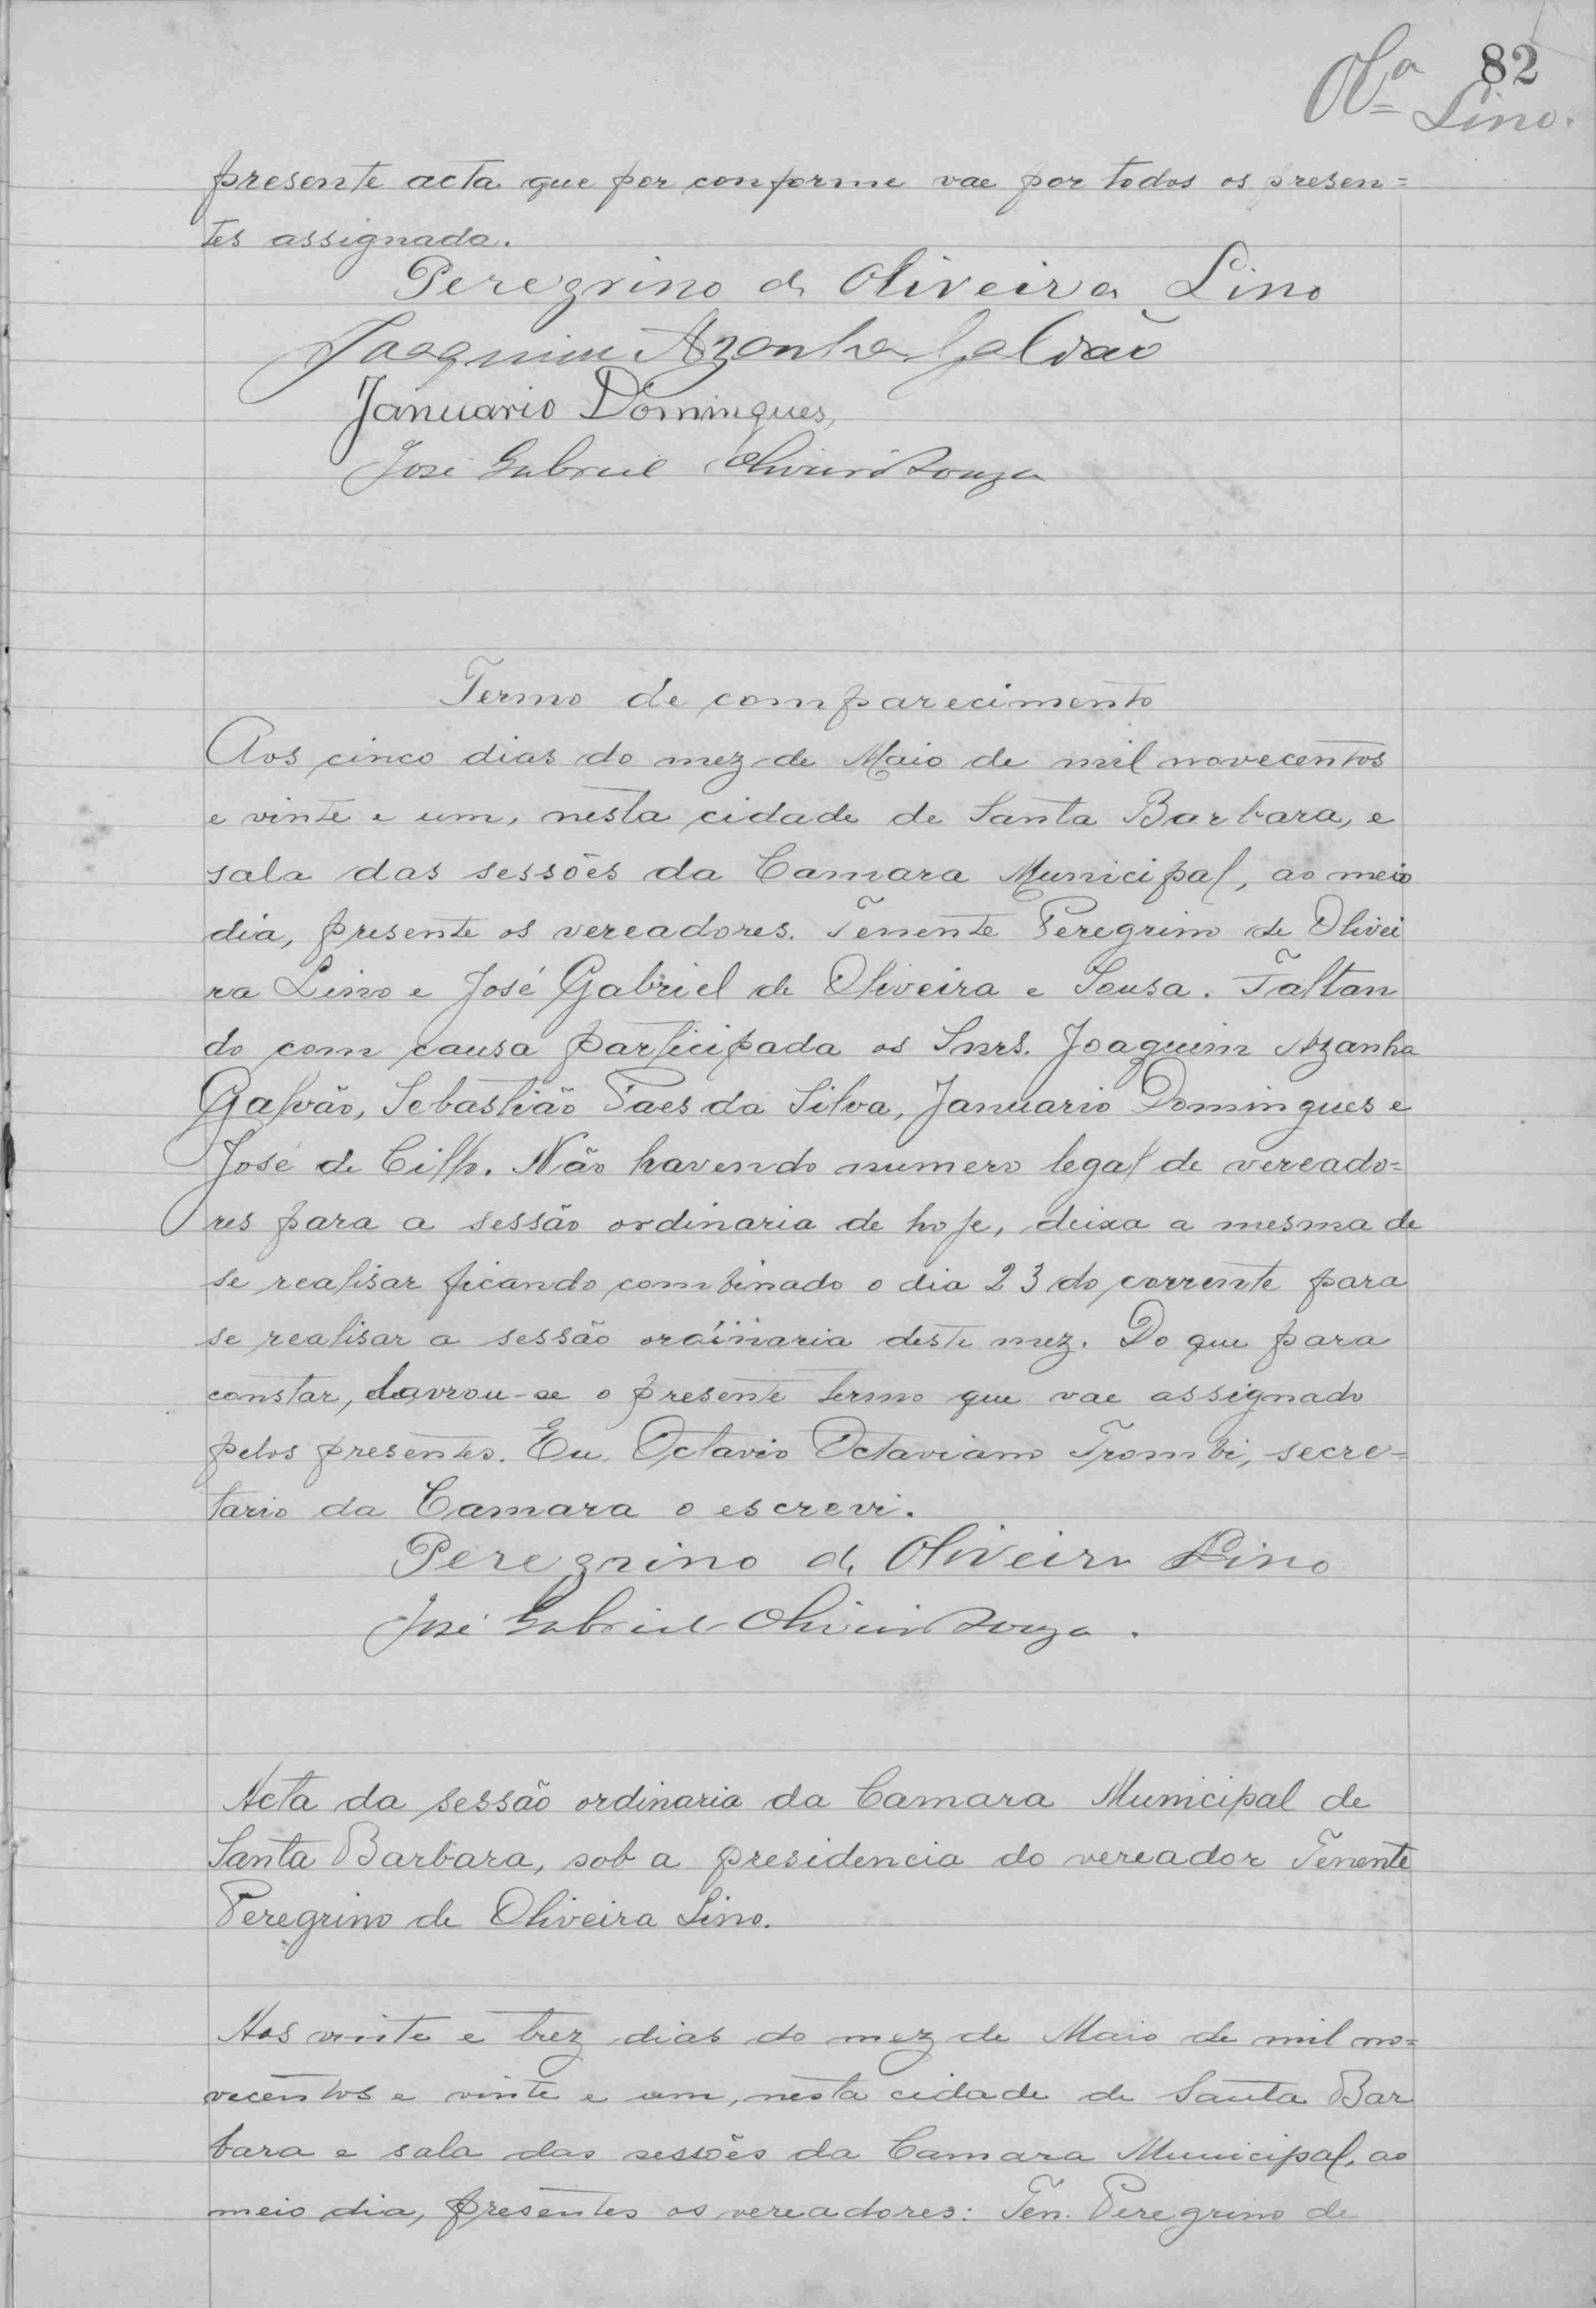 82
Olª Lino.
presente acta que por conforme vae por todos os presen=
tes assignada.
Peregrino de Oliveira Lino
Joaquim Azanha Galvão
Januario Domingues,
José Gabriel Oliveira Souza
Termo de comparecimento
Aos cinco dias do mez de Maio de mil novecentos
e vinte e um, nesta cidade de Santa Barbara, e
sala das sessões da Camara Municipal, ao meio
dia, presente os vereadores. Tenente Peregrino de Olivei
ra Lino e José Gabriel de Oliveira e Sousa. Faltan
do com causa participada os Snrs. Joaquim Azanha
Galvão, Sebastião Paes da Silva, Januario Domingues e
José de Cillo. Não havendo numero legal de vereado=
res para a sessão ordinaria de hoje, deixa a mesma de
se realisar ficando combinado o dia 23 do corrente para
se realisar a sessão ordinaria deste mez. Do que para
constar, lavrou-se o presente termo que vae assignado
pelos presentes. Eu, Octavio Octaviano Trombi, secre=
tario da Camara o escrevi.
Peregrino de Oliveira Lino
José Gabriel Oliveira Souza.
Acta da sessão ordinaria da Camara Municipal de
Santa Barbara, sob a presidencia do vereador Tenente
Peregrino de Oliveira Lino.
Aos vinte e trez dias do mez de Maio de mil no=
vecentos e vinte e um, nesta cidade de Santa Bar
bara e sala das sessões da Camara Municipal, ao
meio dia, presentes os vereadores: Ten. Peregrino de